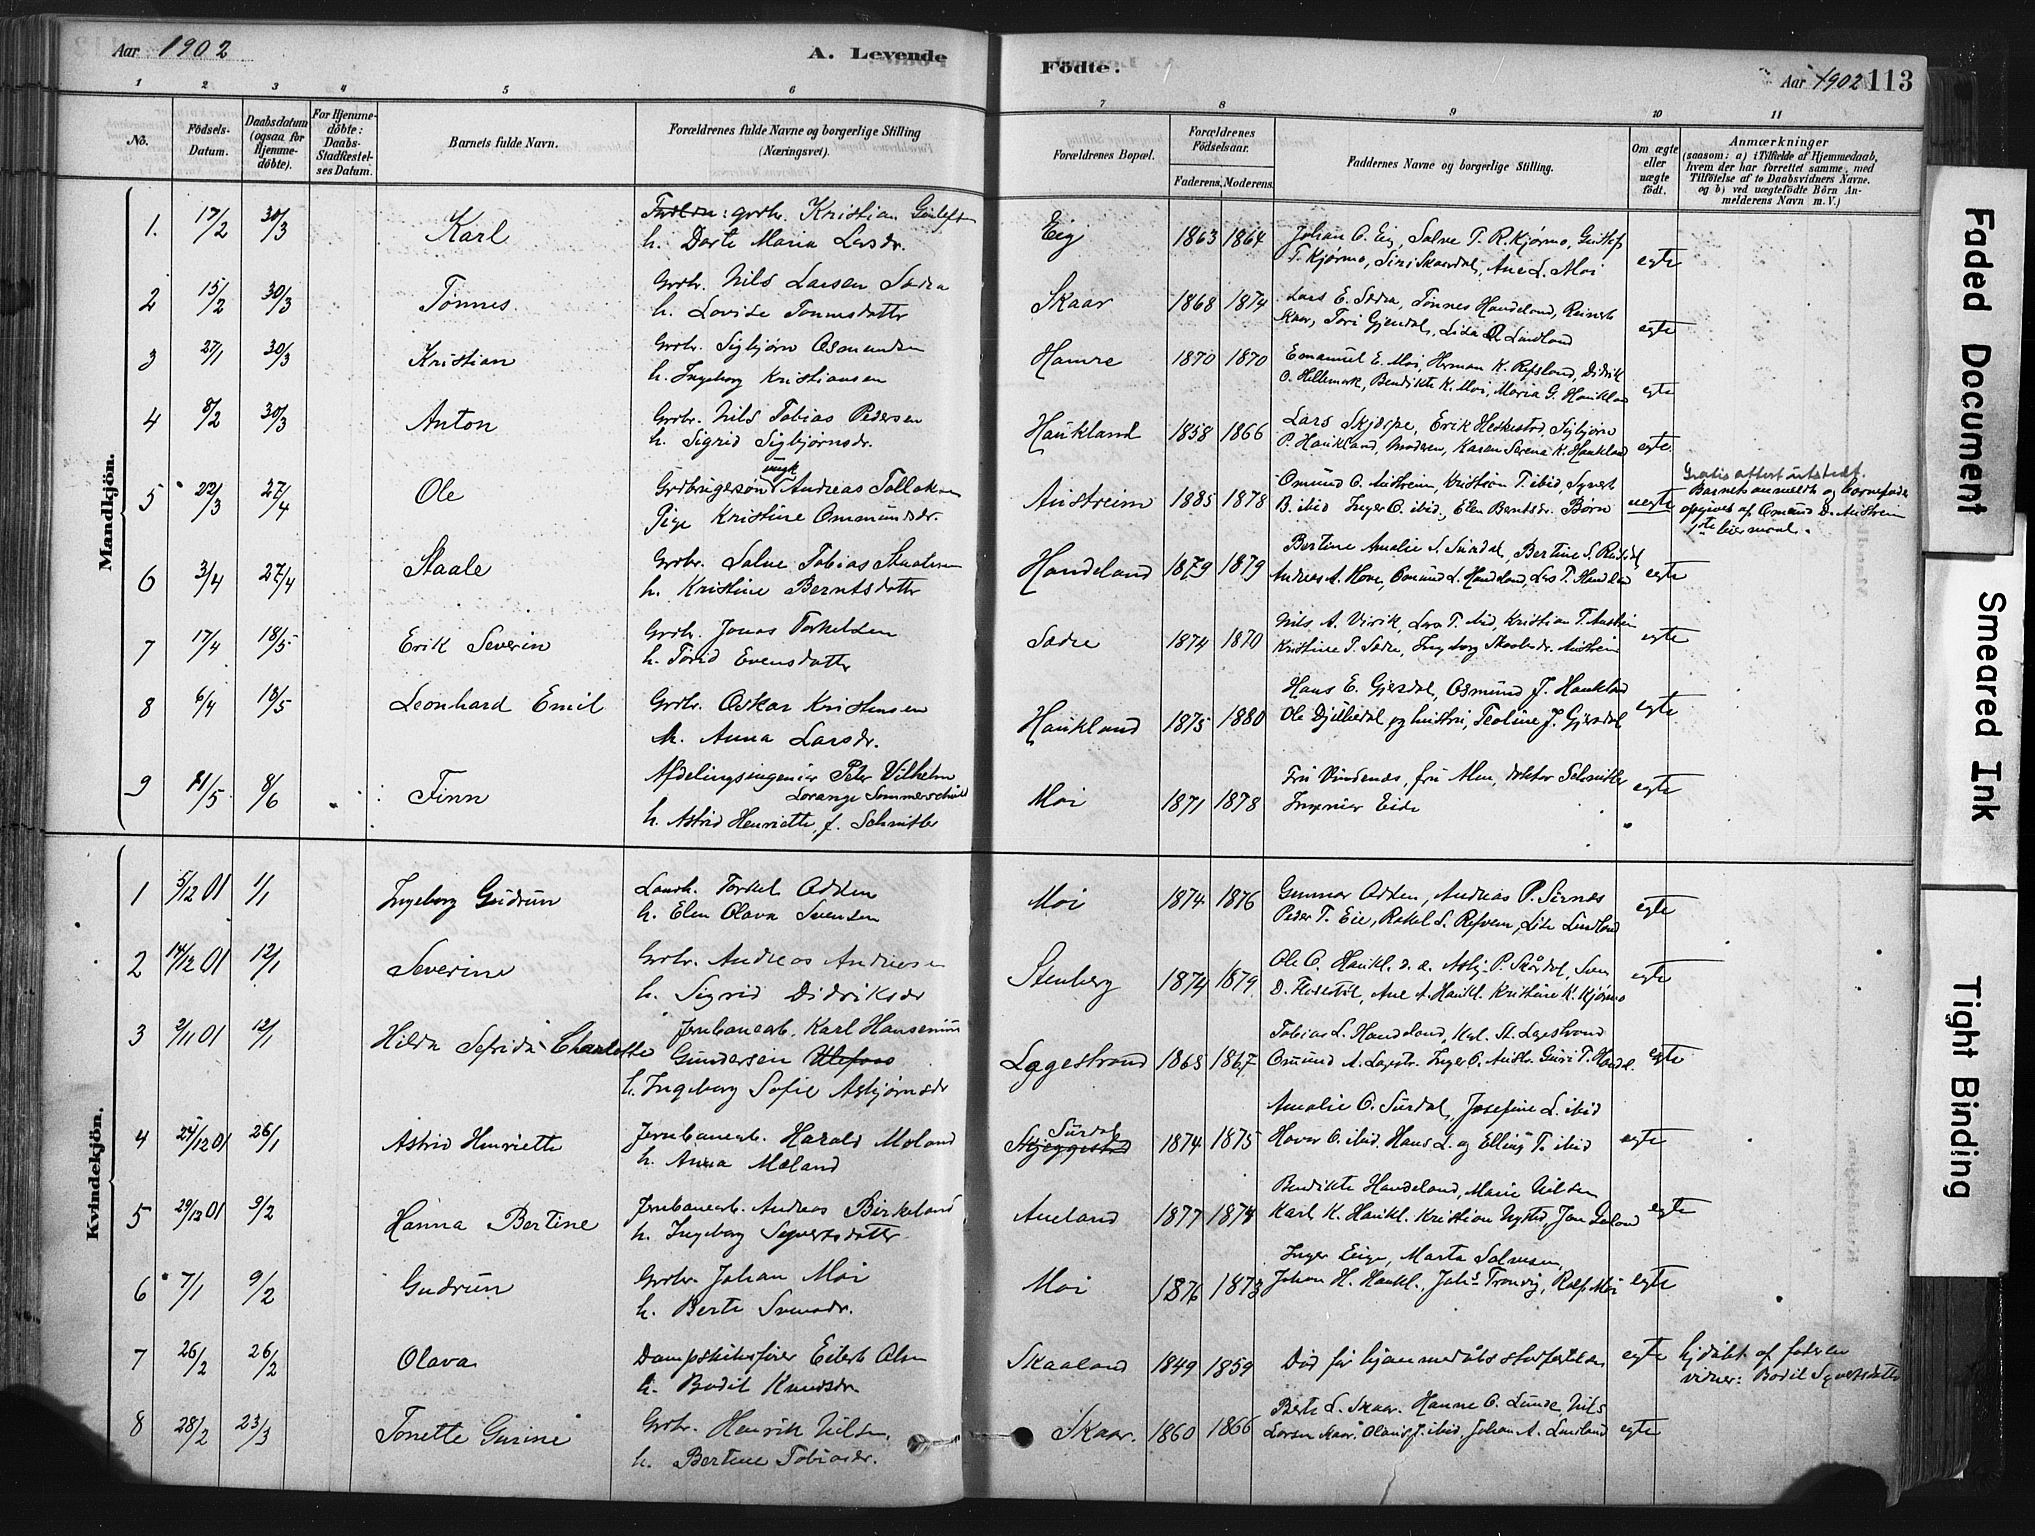 Aar 1902
A. Levende
Födte.
Aar 1902 113
1 2 3 4 5 6 7 8 9 10 11
No.
Födsels-Datum.
Daabsdatum (ogsaa for Hjemme-döbte).
For Hjemme-döbte: Daabs-Stadfæstel-ses Datum.
Barnets fulde Navn.
Forældrenes fulde Navne og borgerlige Stilling (Næringsvei).
Forældrenes Bopæl.
Forældrenes Födselsaar.
Faderens. Moderens.
Faddernes Navne og borgerlige Stilling.
Om ægte eller uægte födt.
Anmærkninger
(saasom: a) i Tilfælde af Hjemmedaab,
hvem der har forrettet samme, med
Tilföielse af to Daabsvidners Navne.
og b) ved uægtefödte Börn An-
melderens Navn m. V.)
Mandkjön.
1. 17/2 30/3 Karl
Grbr. Kristian
h. Dorte Maria Larsdr.
Eig 1863 1864
Johan O. Eig, Salve T. R. Kjørmo,
T. Kjørmo, Siri Skaardal, Ane L. Moi
egte
2 15/2 30/3 Tønnes
Grbr. Nils Larsen Sædre
h. Lovise Tønnesdatter
Skaar 1868 1874
Lars E. Sædre, Tønnes Handeland, Reinert
Skaar, Tori Gjerdal, Lisa Lindland
egte
3 27/1 30/3 Kristian
Grbr. Sigbjørn Osmundsen
h. Ingeborg Kristiansen
Hamre 1870 1870
Emanuel E. Moi, Herman K. Refsland, Didrik
O. Hellemork, Bendikte K. Moi, Maria G. Haukland
egte
4 8/2 30/3 Anton
Grbr. Nils Tobias Pedersen
h. Sigrid Sigbjørnsdr.
Haukland 1858 1866
Lars Skjærpe, Erik Heskestad, Sigbjørn
P. Haukland, Karen Serena K. Haukland
egte
5 22/3 27/4 Ole
Grdbrugersøn ungk Andreas Tollaksen
Pige Kristine Ommundsdr.
Austreim 1885 1878
Omund O. Austreim, Kristian T. ibid, Syvert
B. ibid Inger O. ibid, Elen Berntsdr. Børn
uegte
Gratis attest utstedt.
Barnet anmeldt og barnefader
opgives af Omund O. Austreim
1ste leiermaal.
6 3/4 27/4 Staale
Grbr. Salve Tobias Staalesen
h. Kristine Berntsdatter
Handeland 1879 1879
Bertine Amalie S. Surdal, Bertine S.
Andreas A. Hove, Omund L. Handeland, Lars T.
egte
7 17/4 18/5 Erik Severin
Grbr. Jonas Torkelsen
h. Torid Evensdatter
Sædre 1874 1870
Nils A. Virik, Lars T. ibid, Kristian T. Austreim
Kristine T. Sædre, Ingeborg Austreim
egte
8 6/4 18/5 Leonhard Emil
Grbr. Oskar Kristensen
h. Anna Larsdr.
Haukland 1875 1880
Hans E. Gjersdal, Osmund J. Haukland
Ole og hustru, Teoline J. Gjersdal
egte
9 11/5 8/6 Finn
Afdelingsingeniør Peter Vilhelm
Lorange Sommerschild
h. Astrid Henriette, f. Schmitler
Moi 1871 1878
Fru Vindenæs, fru Alm, doktor Schmitler
Ingeniør Eide
egte
Kvindekjön.
1 5/12 01 1/1 Ingeborg Gudrun
Landh. Torkel Odden
h. Elen Olava Svensen
Moi 1874 1876
Gunnar Odden, Andreas P. Sirnes
Peder T. Eie, Rakel S. Refvem, Lise Lindland
egte
2 14/12 01 12/1 Severine
Grbr. Andreas Andersen
h. Sigrid Didriksdr
Stenberg 1874 1879
Ole O. Haukl. Asbj. P. Skårdal, Sven
D. Ane A. Haukl. Kristine K. Kjørmo
egte
3 2/11 01 12/1 Hilda Sefrida Charlotte
Jernbanearb. Karl Hansenius
Gundersen Ulefoss
h. Ingeborg Sofie Asbjørnsdr
Lægestrand 1865 1867
Tobias L. Handeland, Karl St. Lægestrand
Omund A. Lægstr. Inger O. Austr. Guri T. Handel.
egte
4 24/12 01 26/1 Astrid Henriette
Jernbanearb. Harald Moland
h. Anna Mæland
Surdal
Skjeggestad 1874 1875
Amalie O. Surdal, Josefine L. ibid
Haver O. ibid. Hans L. og Elling T. ibid
egte
5 29/12 01 9/2 Hanna Bertine
Jernbanearb. Andreas Birkeland
h. Ingeborg Syvertsdatter
Aneland 1877 1874
Bendikte Handeland, Marie Nilsen
Karl K. Haukl. Kristian Nysted, Jan
egte
6 7/1 9/2 Gudrun
Grbr. Johan Moi
h. Berte Svensdr.
Moi 1876 1873
Inger Eige, Marta Salvesen,
Johan H. Haukl., Johs Tronvig, Rolf Moi
egte
7 26/2 26/2 Olava
Dampskibsfører Eilert Olsen
h. Bodil Knudsdr.
Skaaland 1849 1859
Død før hjemmedåbs stadfæstelse
egte
hj.døbt af faderen
vidner: Bodil Syvertsdatter
8 28/2 23/3 Tonette Gurine
Grbr. Henrik Nilsen
h. Bertine Tobiasdr.
Skaar. 1860 1866
Berte L. Skaar. Hanne O. Lunde, Nils
Larsen Skaar. Olaus J. ibid, Johan A. Lindland
egte
Faded Document
Smeared Ink
Tight Binding